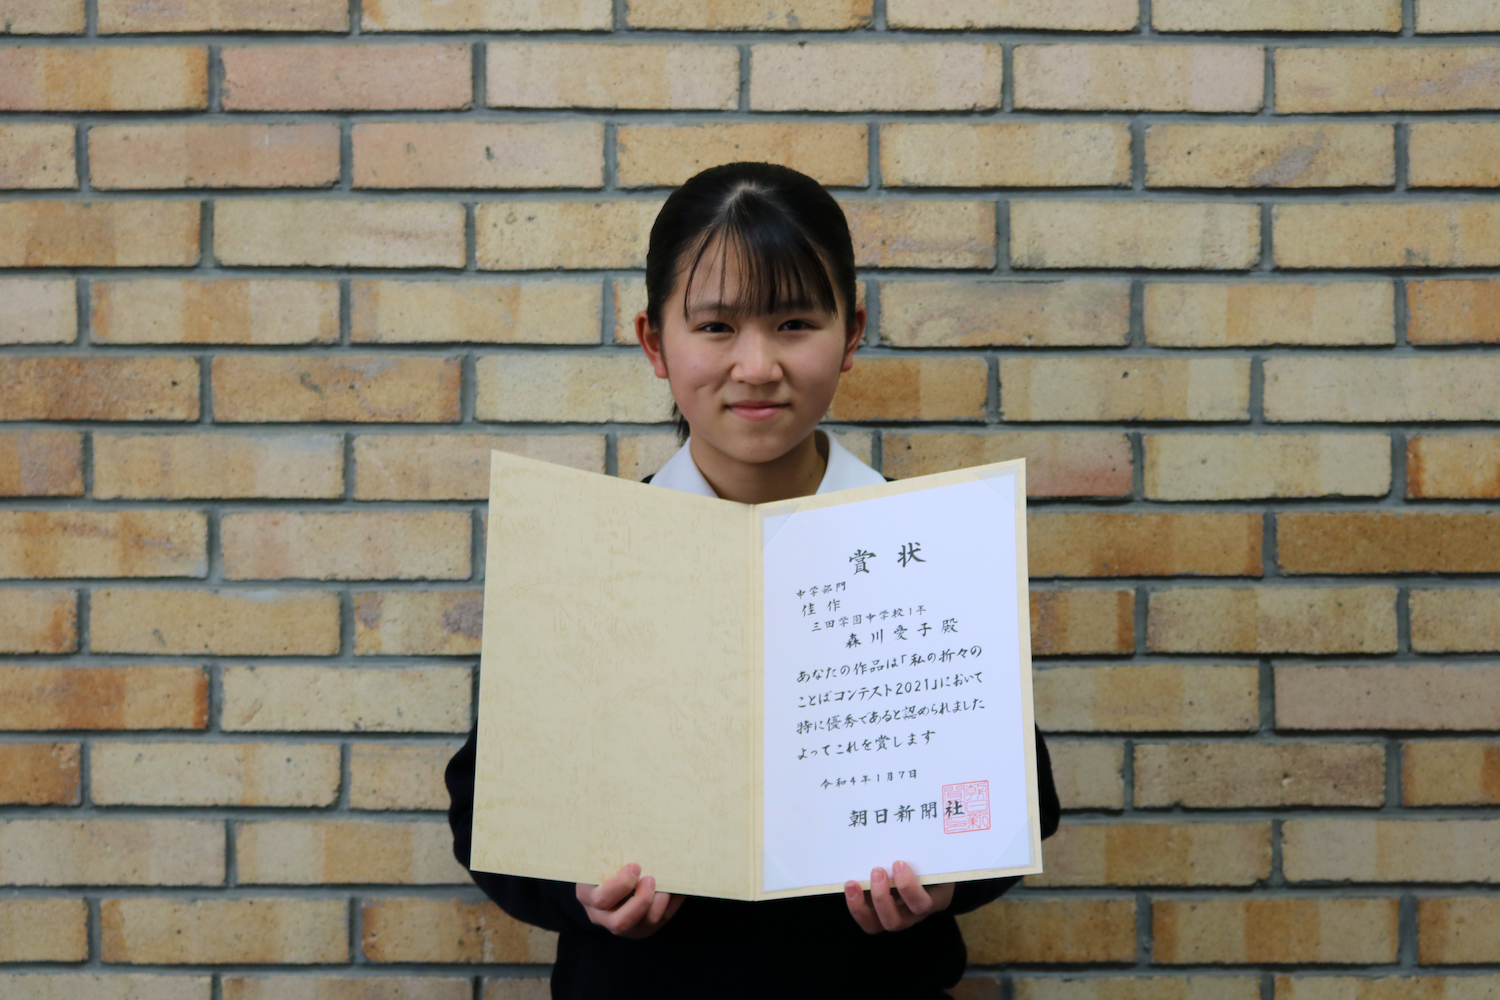 賞状
中学部門
佳作
三田学園中学校1年
森川愛子殿
あなたの作品は「私の折々の
ことばコンテスト2021」において
特に優秀であると認められました
よってこれを賞します
令和4年1月7日
朝日新聞社